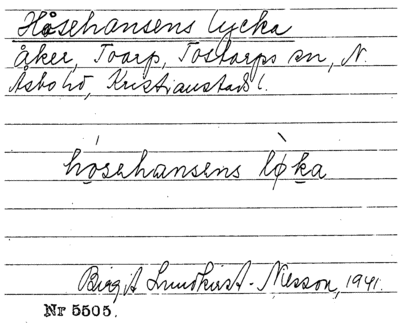 Håsehansens lycka
åker, Toarp, Tostarps sn, N.
Åsbo hd, Kristianstads l.
hósehansens lø̀ka
Birgit Lundkvist-Nilsson, 1941.
Nr 5505.